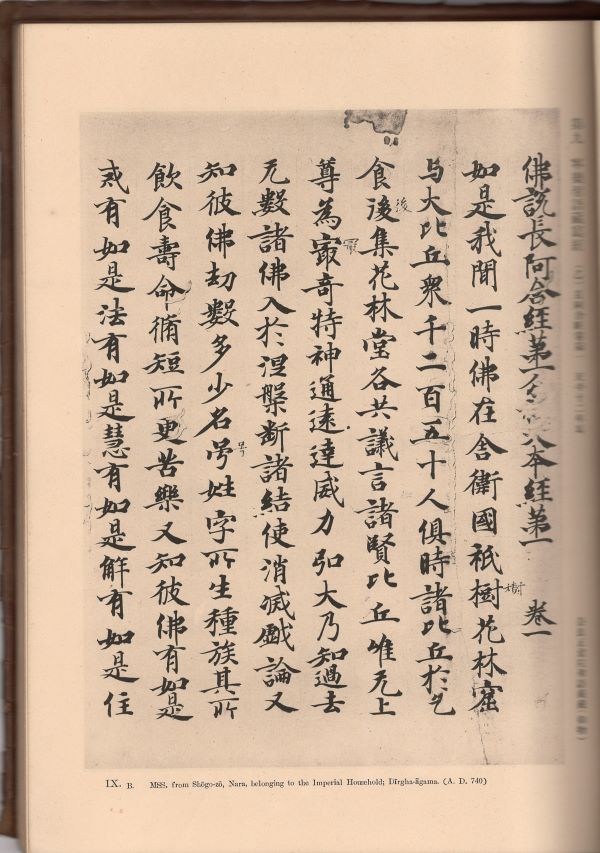 佛說長阿含經第一分大本經第一 卷一
如是我聞一時佛在舍衛國祇樹花林窟
与大比丘衆千二百五十人俱時諸比丘於乞
食後集花林堂各共議言諸賢比丘唯无上
尊為寂奇特神通遠達威力弘大乃知過去
无數諸佛入於涅槃斷諸結使消滅戲論又
知彼佛劫數多少名号姓字所生種族其所
飲食壽命脩短所更苦樂又知彼佛有如是
戒有如是法有如是慧有如是解有如是住
IX. B. MSS. from Shōgo-zō, Nara, belonging to the Imperial Household; Dīrgha-āgama. (A. D. 740)